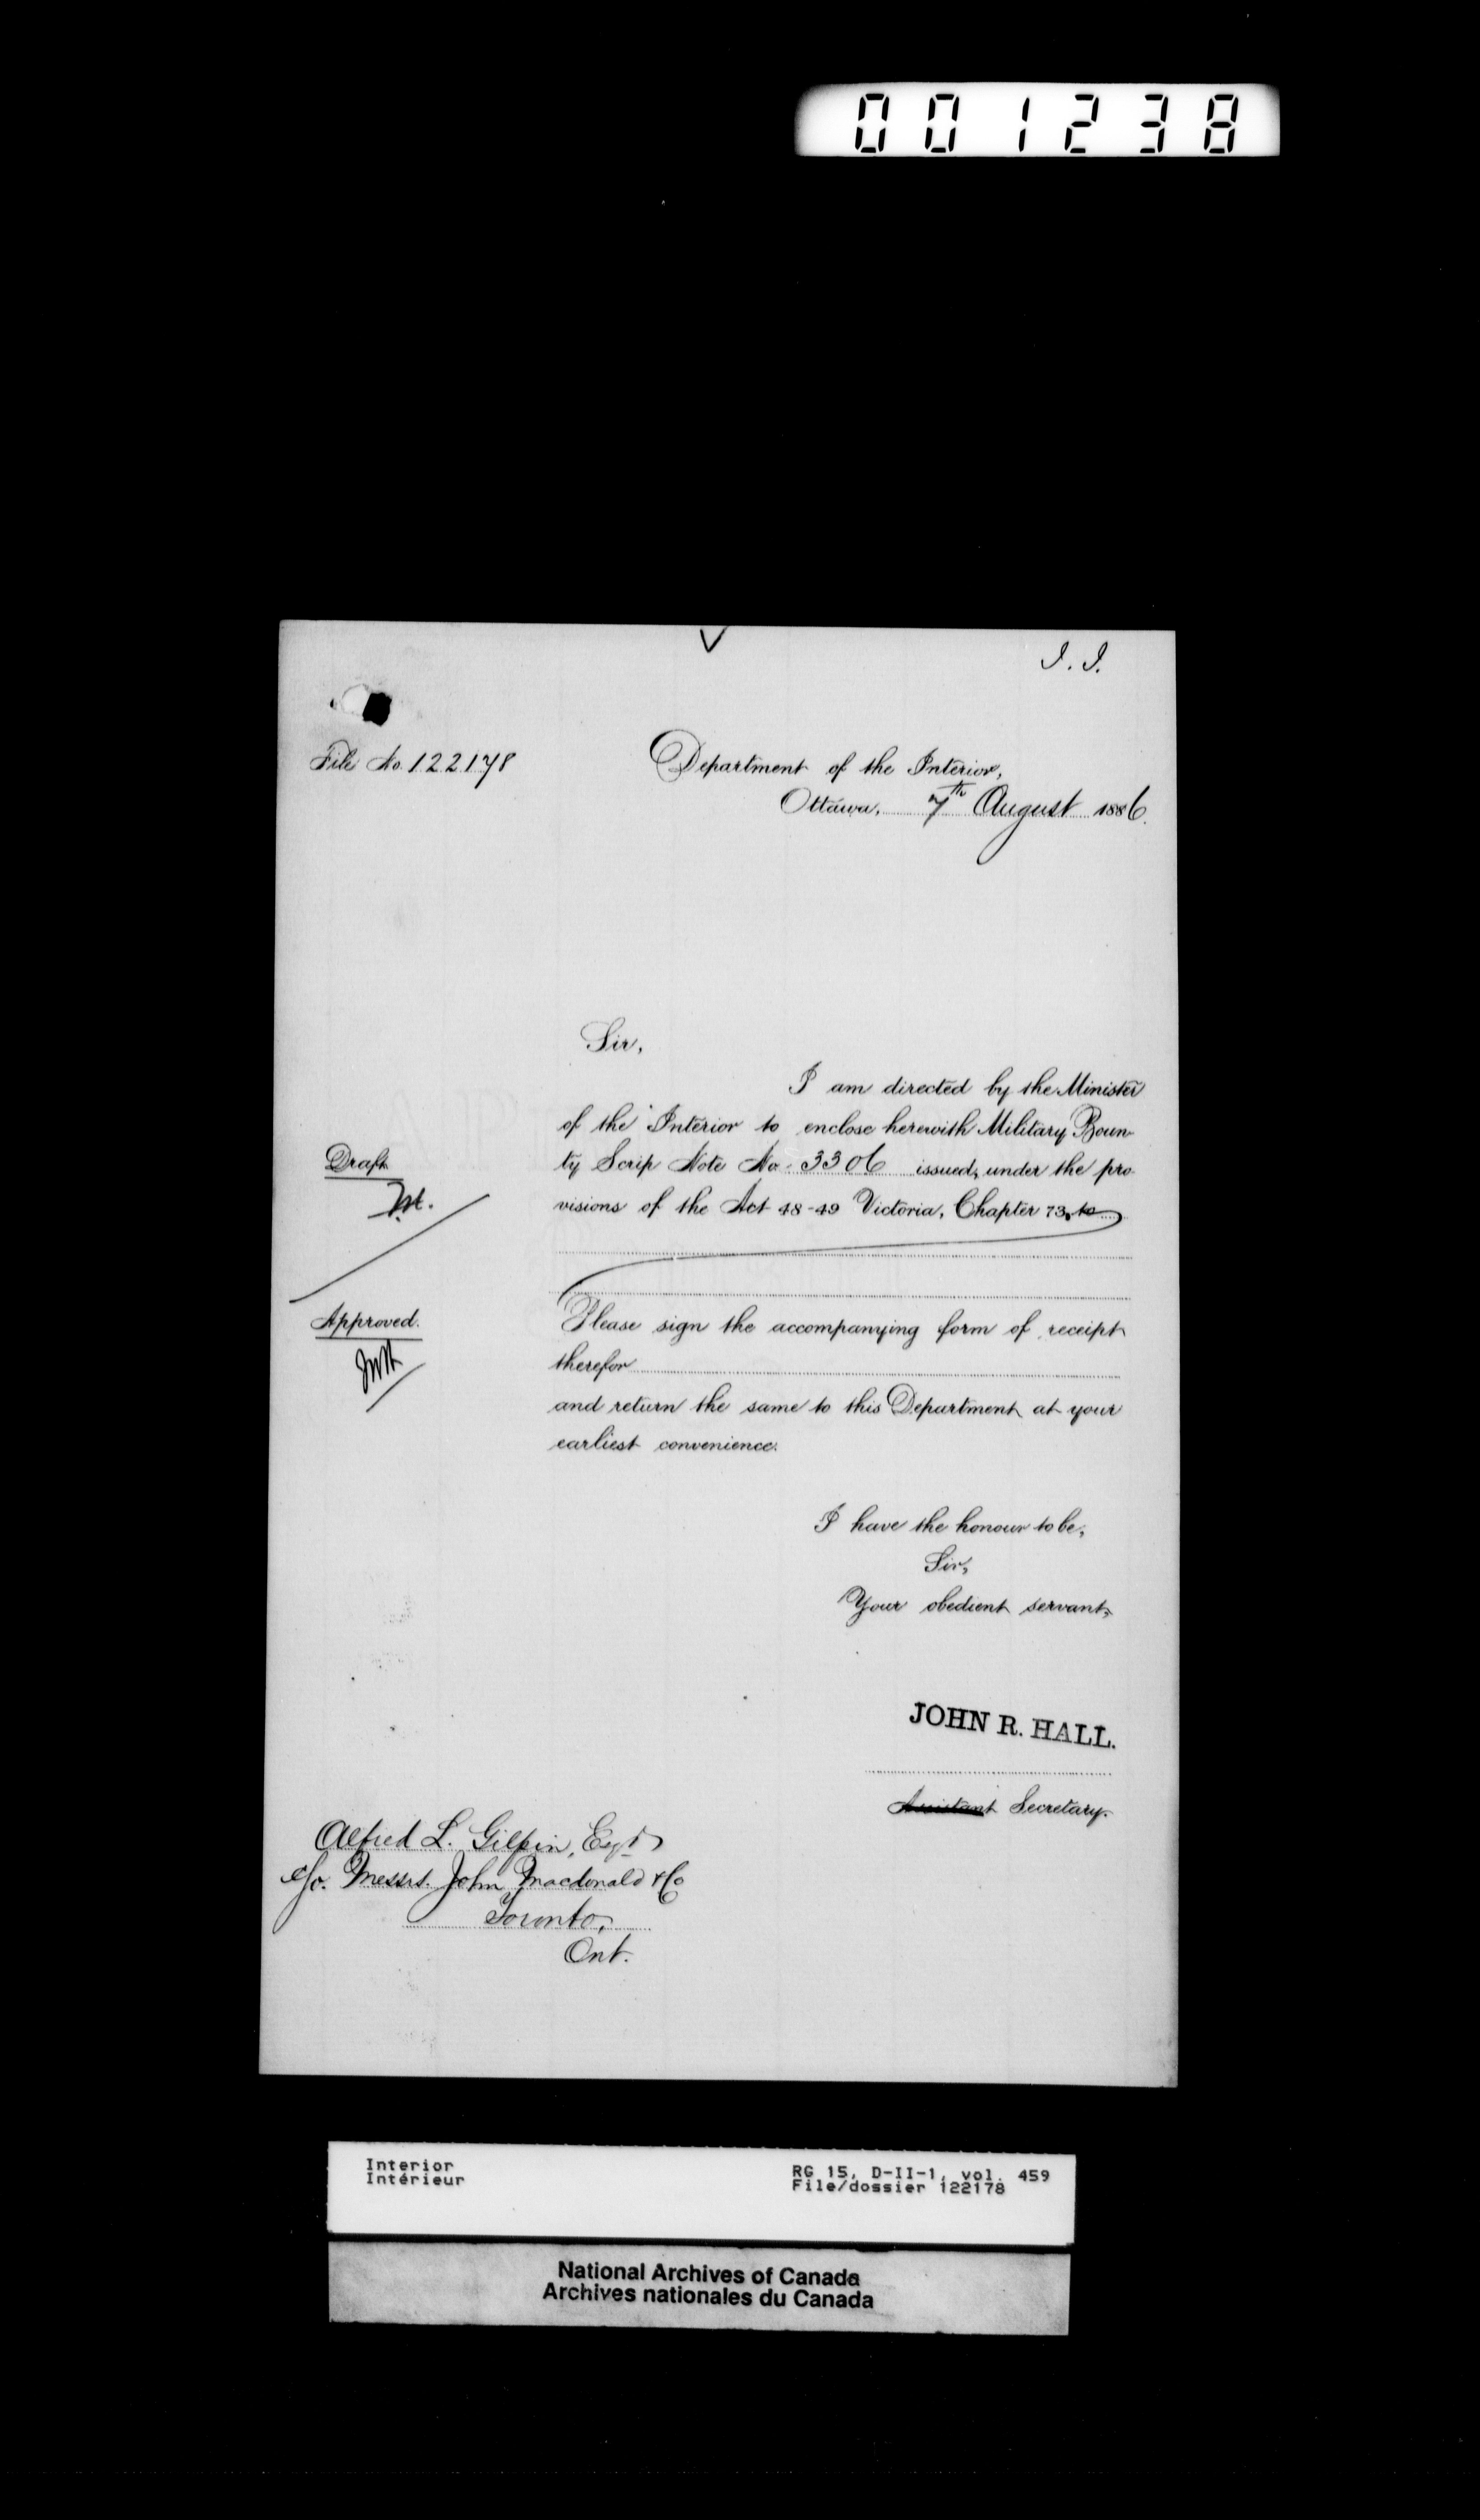 001238
I. I.
File No. 122178
Department of the Interior,
Ottawa, 7th August 1886.
Sir,
I am directed by the Minister
of the Interior to enclose herewith Military Boun-
ty Scrip Note No. 3306 issued, under the pro-
visions of the Act 48-49 Victoria, Chapter 73, to
Draft
Approved.
Please sign the accompanying form of receipt
therefor
and return the same to this Department at your
earliest convenience.
I have the honour to be,
Sir,
Your obedient servant,
JOHN R. HALL.
Assistant Secretary.
Alfred L. Gilpin, Esqr
c/o. Messrs. John Macdonald & Co
Toronto,
Ont.
Interior
Intérieur
RG 15, D-II-1, vol. 459
File/dossier 122178
National Archives of Canada
Archives nationales du Canada